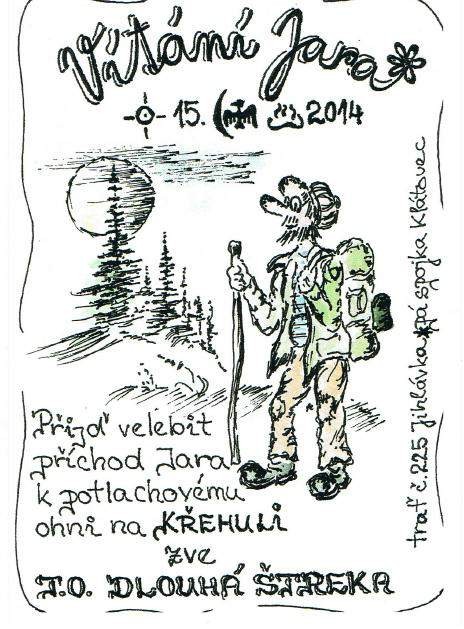 Vítání Jara
15. 2014
Přijď velebit
příchod Jara
k potlachovému
ohni na KŘEHULI
zve
T.O. DLOUHÁ ŠTREKA
trať č.225 Jihlávka*pá spojka Klátovec